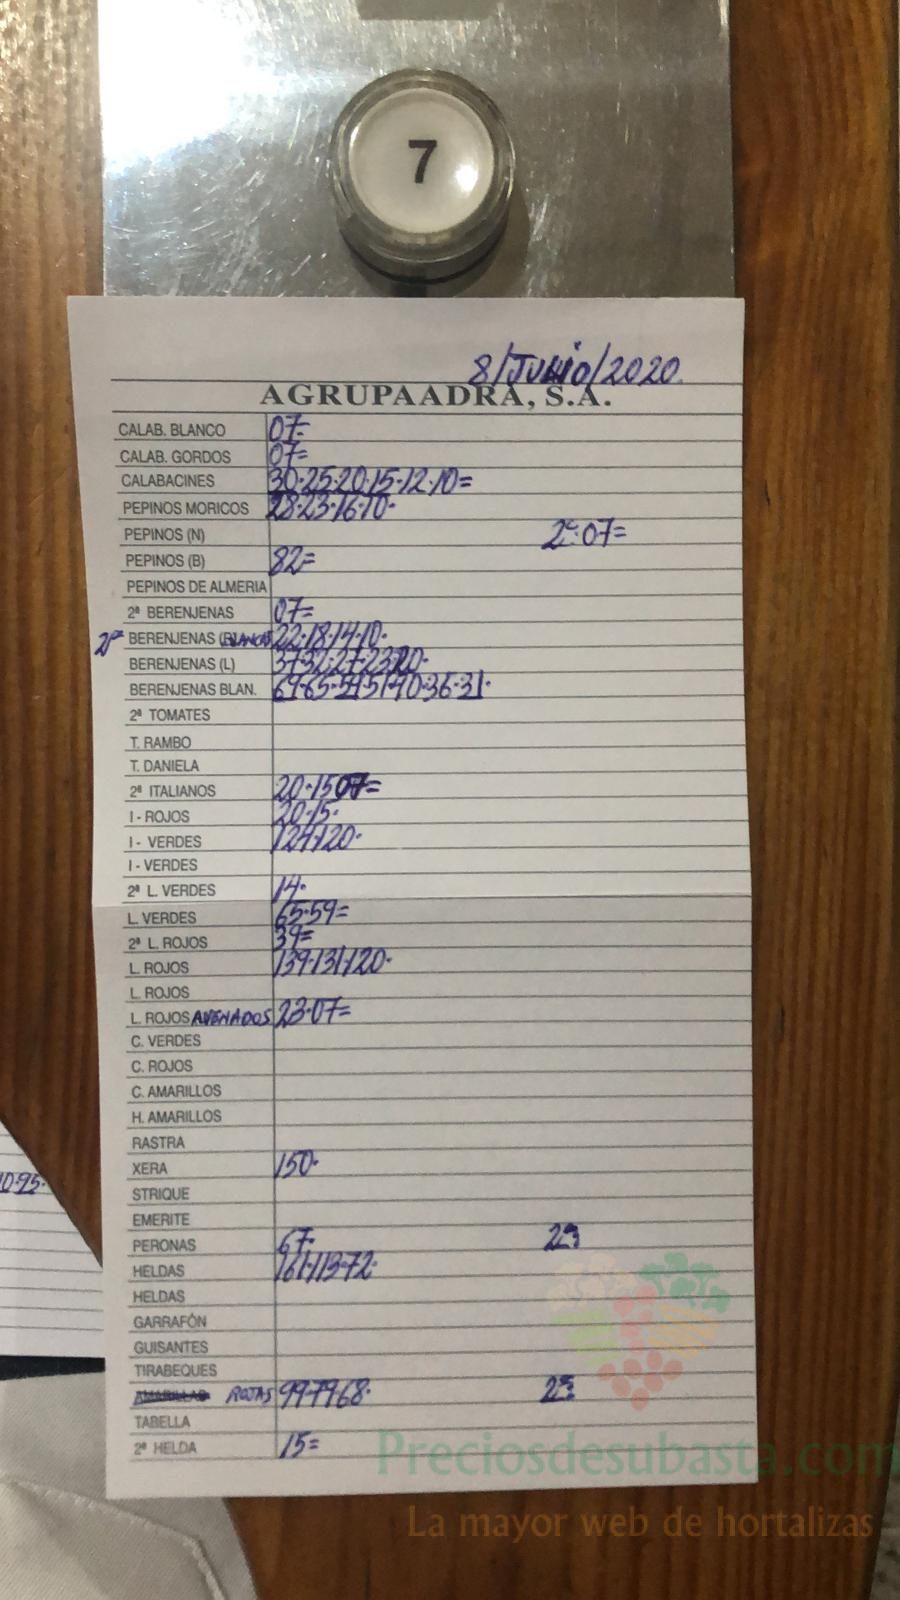 7
8/Junio/2020
AGRUPAADRA, S.A.
CALAB. BLANCO 07=
CALAB. GORDOS 07=
CALABACINES 30·25·20·15·12·10=
PEPINOS MORICOS 28·23·16·10·
PEPINOS (N) 2ª:07=
PEPINOS (B) 82=
PEPINOS DE ALMERIA
2ª BERENJENAS 07=
2ª BERENJENAS (BLANCAS 22·18·14·10·
BERENJENAS (L) 37·32·27·23·20·
BERENJENAS BLAN. 69·65·54·51·40·36·31·
2ª TOMATES
T. RAMBO
T. DANIELA
2ª ITALIANOS 20·15 07=
I - ROJOS 20·15·
I - VERDES 124·120·
I - VERDES
2ª L. VERDES 14·
L. VERDES 65·59=
2ª L. ROJOS 39=
L. ROJOS 139·131·120·
L. ROJOS
L. ROJOS AVENADOS 23·07=
C. VERDES
C. ROJOS
C. AMARILLOS
H. AMARILLOS
RASTRA
XERA 150·
STRIQUE
EMERITE
PERONAS 67· 2ª:
HELDAS 161·113·72·
HELDAS
GARRAFÓN
GUISANTES
TIRABEQUES
ROJAS 99·79·68· 2ª:
TABELLA
2ª HELDA 15=
10·95·
Preciosdesubasta.com
La mayor web de hortalizas